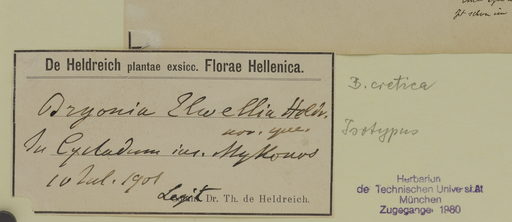 De Heldreich plantae exsicc. Florae Hellenica.
Bryonia Elwellia Heldr.
nov. spec.
In Cycladum ins. Mykonos
10 Jul. 1901
Legit Dr. Th. de Heldreich.
B. cretica
Isotypus
Herbarium
der Technischen Universität
München
Zugegangen 1980